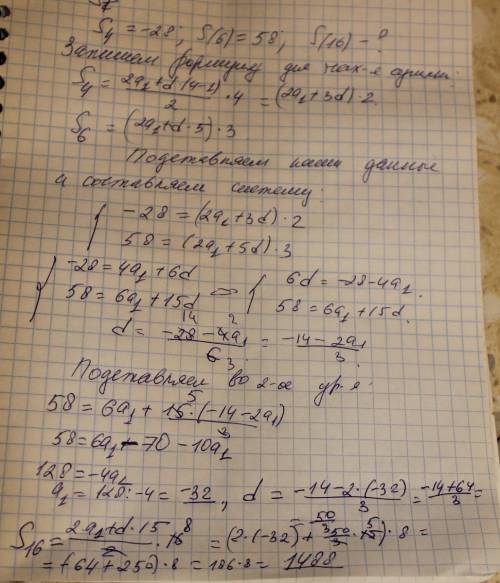 S₄ = -28; S(6) = 58; S(16) - ?
Запишем формулу для нах-я суммы:
S₄ = (2a₁ + d·(4-1))/2 · 4 = (2a₁ + 3d)·2
S₆ = (2a₁ + d·5)·3
Подставляем наши данные
и составляем систему:
{ -28 = (2a₁ + 3d)·2
58 = (2a₁ + 5d)·3
{ -28 = 4a₁ + 6d ⇔ { 6d = -28 - 4a₁
58 = 6a₁ + 15d 58 = 6a₁ + 15d
d = (-28 - 4a₁)/6 = (-14 - 2a₁)/3
Подставляем во 2-ое ур-е:
58 = 6a₁ + 15·(-14 - 2a₁)/3
58 = 6a₁ - 70 - 10a₁
128 = -4a₁
a₁ = 128 : -4 = -32, d = (-14 - 2·(-32))/3 = (-14 + 64)/3 =
= 50/3
S₁₆ = (2a₁ + d·15)/2 · 16 = (2·(-32) + 50/3 · 15)·8 =
= (-64 + 250)·8 = 186·8 = 1488